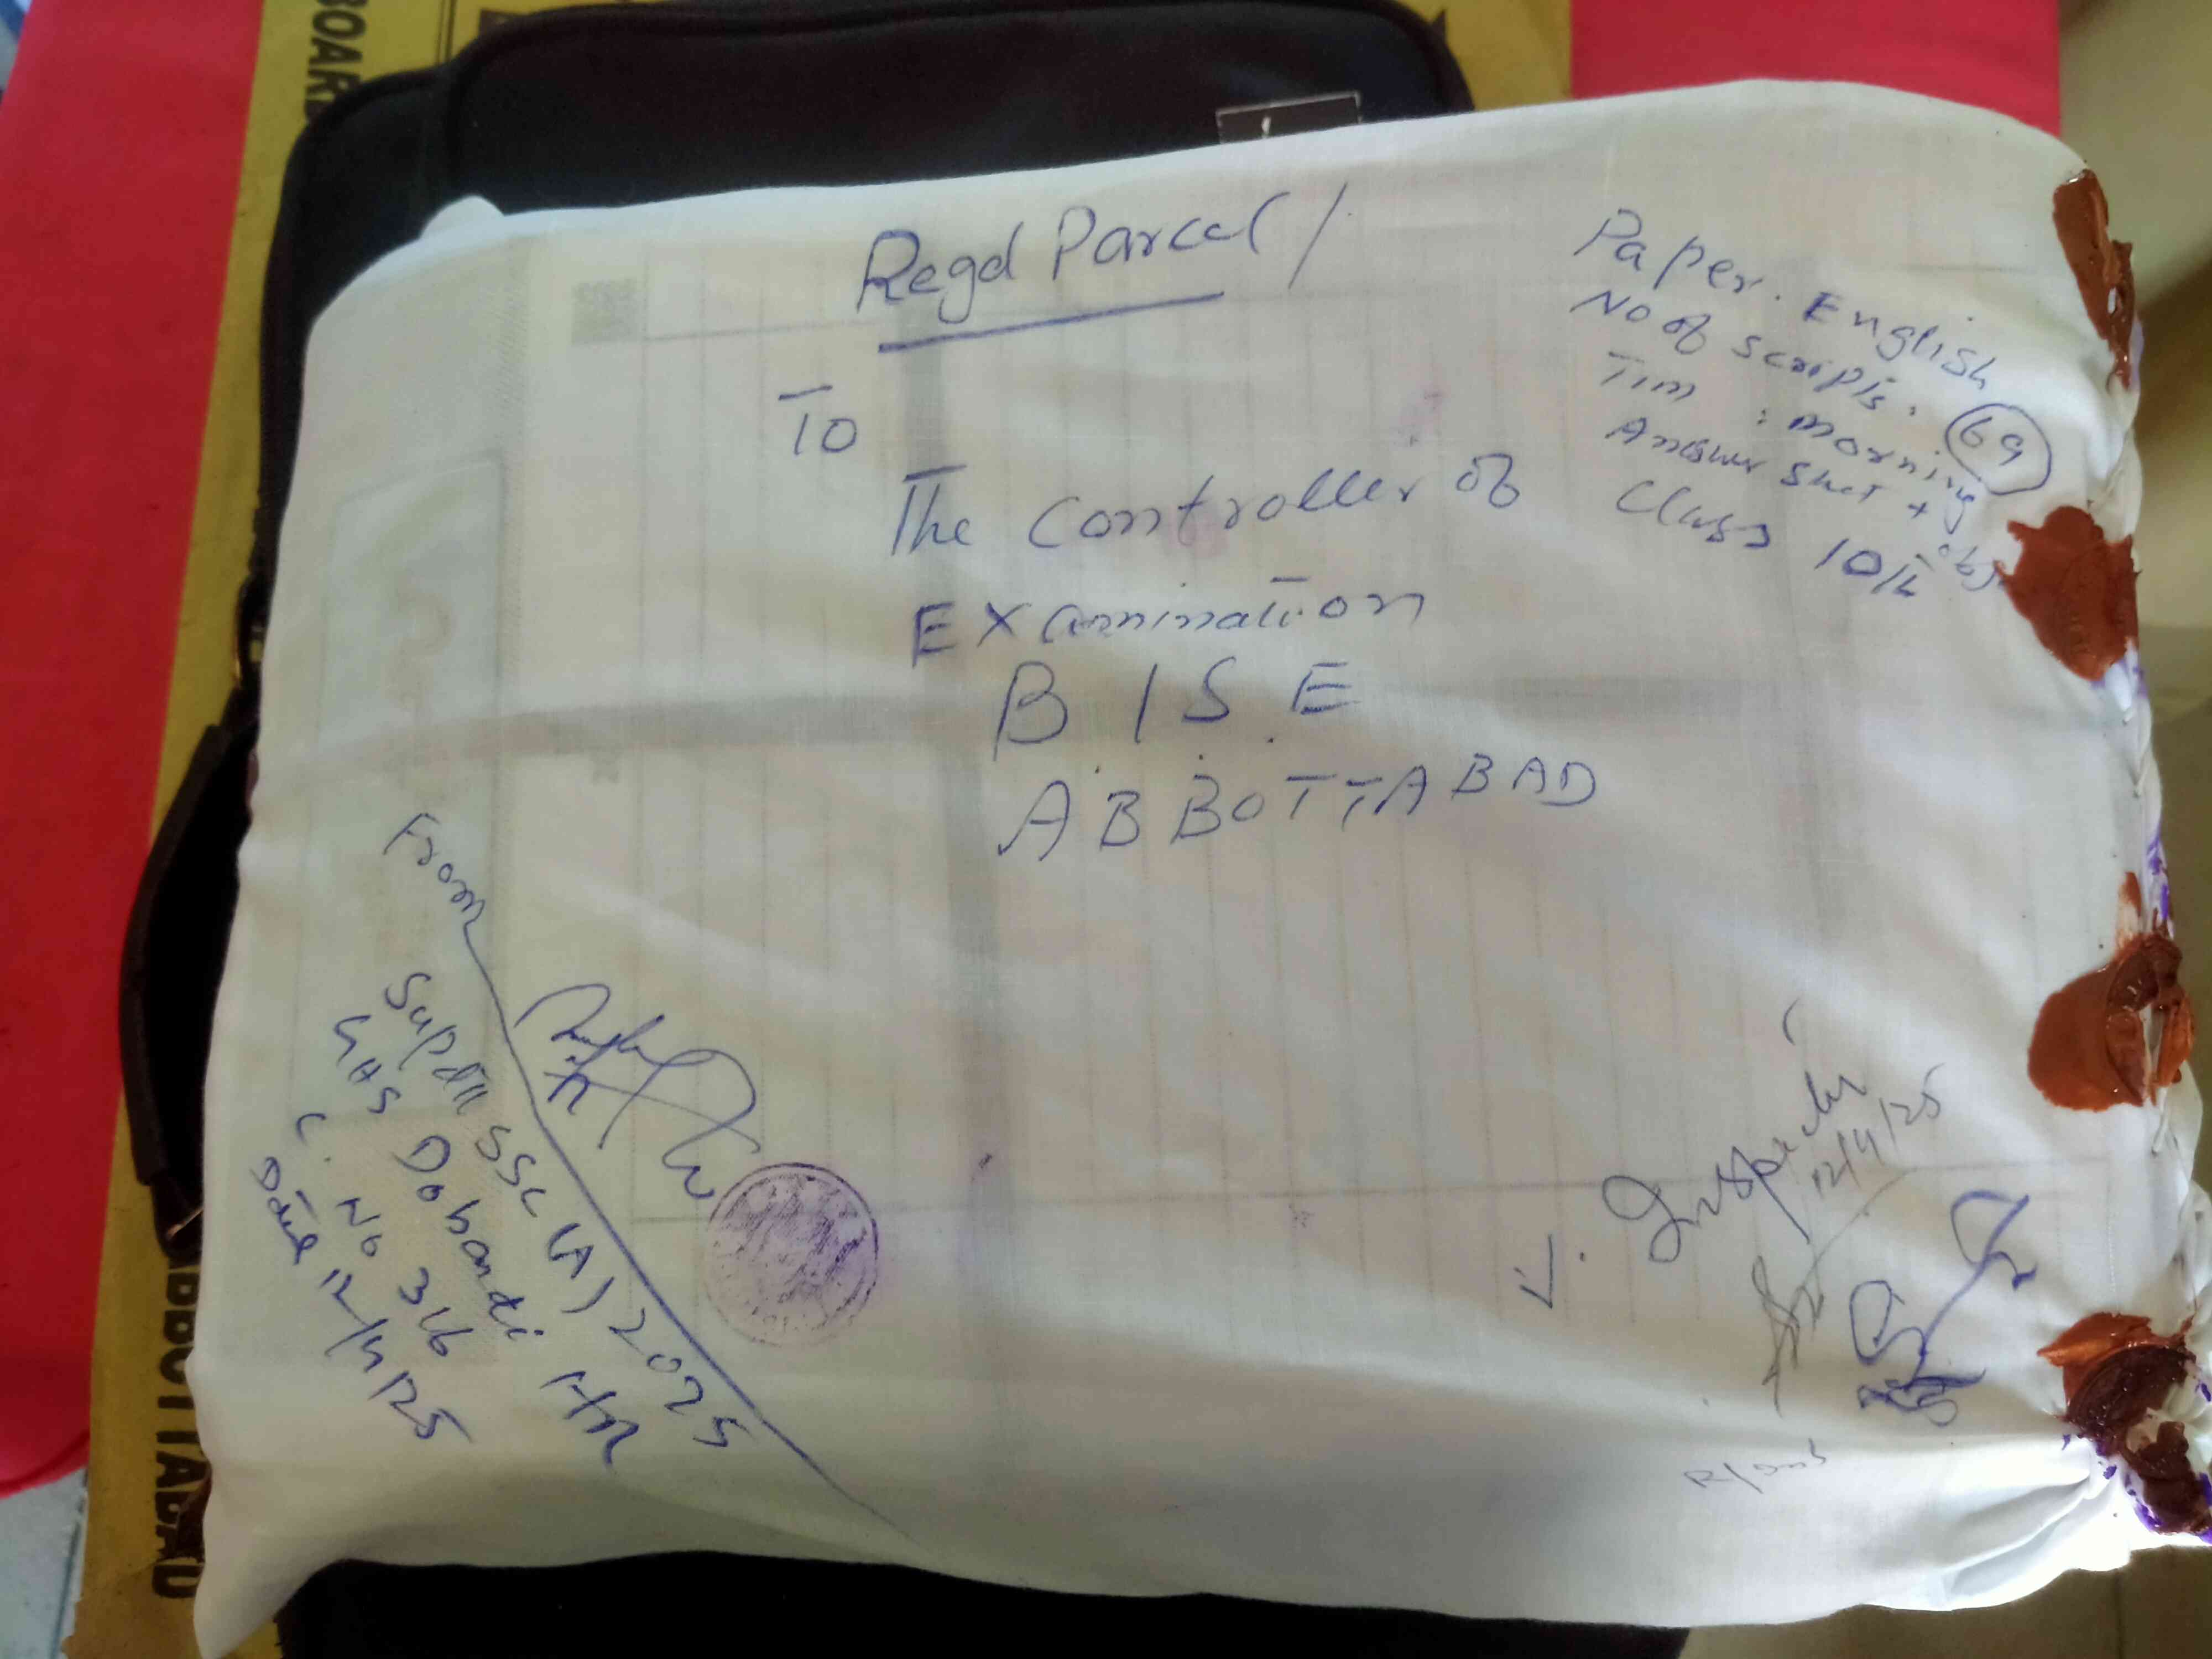 BOARD
ABBOTTABAD
Regd Parcel /
Paper. English
No of scripts. 69
Tim : morning
Answer Shet + obj
Class 10th
To
The Controller of
Examination
B I S E
ABBOTTABAD
From
Supdtt SSC (A) 2025
GHS Dobandi HR
C. No 316
Date 12/4/25
Inspector
12/4/25